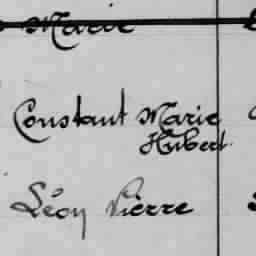 Marie
Constant Marie
Hubert
Léon Pierre